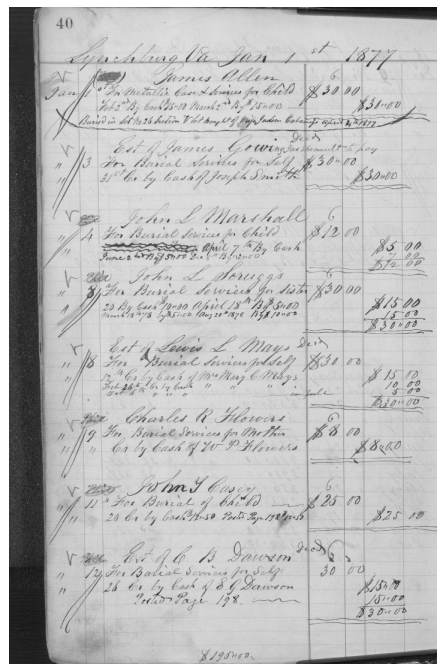 40
Lynchburg Va Jan 1st 1877
James Allen 6
Jan 1 For Metallic Case & Services for Child $30 00
Feb 2nd By Cash 15=00 March 2nd By 15=00 $30=00
Buried in Section V lot Bought of April 4th 1877
Est of James Gowin Decd to pay
" 3 For Burial Services for Self $30=00
31st Cr by Cash of Joseph Smith $30=00
John L Marshall 6
" 4 For Burial Services for Child $12 00
April 7th By Cash $5 00
June 2nd 7 00
$12 00
John L Scruggs 6
" 8 For Burial Services for Sister $30=00
23 By Cash 10=00 April 18th By 5=00 $15 00
By 5=00 Aug 20th 1878 By $10=00 15 00
$30=00
Est of Lewis L Mays Decd
" 8 For Burial Services for Self $30 00
Cr by Cash of Mrs Mary C Mays $15 00
Cr by Cash " " " 10 00
" " " in full 5 00
$30=00
Charles R Flowers 6
" 9 For Burial Services for Mother $8 00
" Cr by Cash of W P Flowers $8=00
John T Casey 6
" 11 For Burial of Child $25 00
26 Cr by Cash Posted Page 198 $25 00
Est of C B Dawson Decd 6
" 12 For Burial Services for Self 30 00
26 Cr by Cash of E G Dawson $15=00
Posted Page 198 15=00
$30=00
$195=00